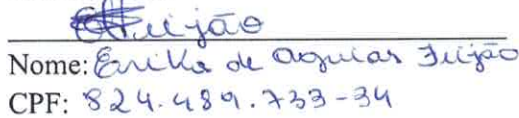 Feijão
Nome: Erika de Aguiar Feijão
CPF: 824.489.733-34